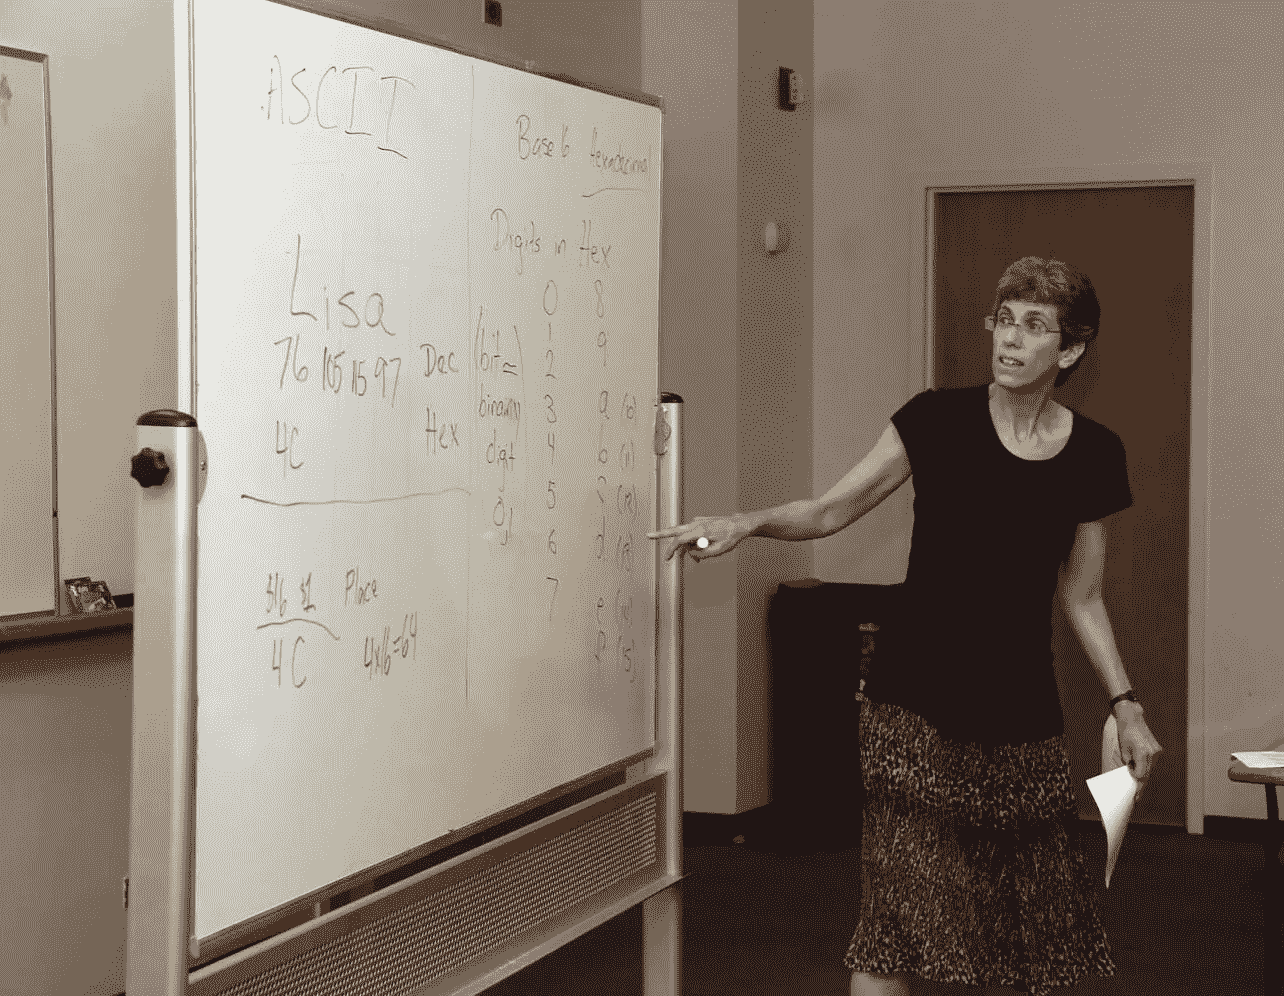 ASCII
Lisa
76 105 115 97 Dec
4C Hex
$16 $1 Place
4C 4x16=64
Base 16 Hexadecimal
Digits in Hex
(bit =
binary)
digit
0 8
1 9
2
3 a (10)
4 b (11)
5 c (12)
6 d (13)
7 e (14)
f (15)